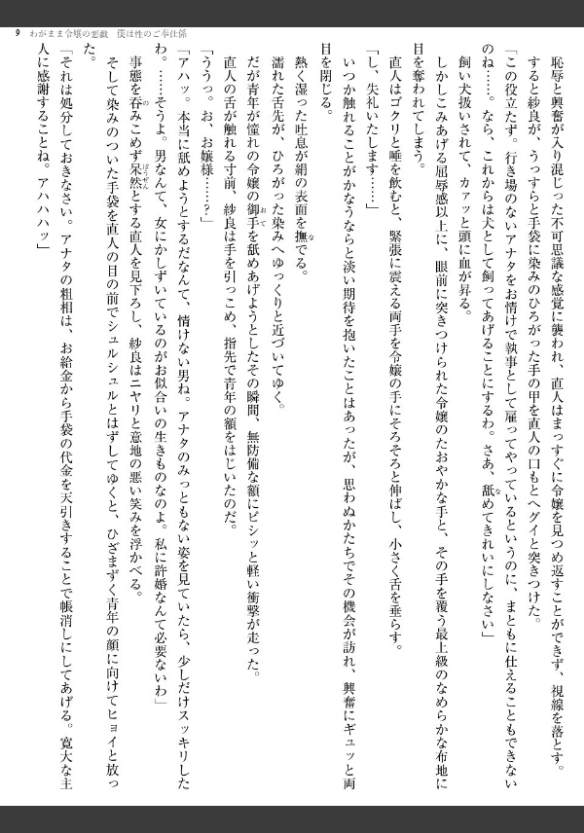 9 わがまま令嬢の悪戯 僕は性のご奉仕係
恥辱と興奮が入り混じった不可思議な感覚に襲われ、直人はまっすぐに令嬢を見つめ返すことができず、視線を落とす。
すると紗良が、うっすらと手袋に染みのひろがった手の甲を直人の口もとへグイと突きつけた。
「この役立たず。行き場のないアナタをお情けで執事として雇ってやっているというのに、まともに仕えることもできない
のね……。なら、これからは犬として飼ってあげることにするわ。さあ、舐めてきれいにしなさい」
飼い犬扱いされて、カァッと頭に血が昇る。
しかしこみあげる屈辱感以上に、眼前に突きつけられた令嬢のたおやかな手と、その手を覆う最上級のなめらかな布地に
目を奪われてしまう。
直人はゴクリと唾を飲むと、緊張に震える両手を令嬢の手にそろそろと伸ばし、小さく舌を垂らす。
「し、失礼いたします……」
いつか触れることがかなうならと淡い期待を抱いたことはあったが、思わぬかたちでその機会が訪れ、興奮にギュッと両
目を閉じる。
熱く湿った吐息が絹の表面を撫でる。
濡れた舌先が、ひろがった染みへゆっくりと近づいてゆく。
だが青年が憧れの令嬢の御手を舐めあげようとしたその瞬間、無防備な額にビシッと軽い衝撃が走った。
直人の舌が触れる寸前、紗良は手を引っこめ、指先で青年の額をはじいたのだ。
「ううっ。お、お嬢様……？」
「アハッ。本当に舐めようとするだなんて、情けない男ね。アナタのみっともない姿を見ていたら、少しだけスッキリした
わ。……そうよ。男なんて、女にかしずいているのがお似合いの生きものなのよ。私に許婚なんて必要ないわ」
事態を呑みこめず呆然とする直人を見下ろし、紗良はニヤリと意地の悪い笑みを浮かべる。
そして染みのついた手袋を直人の目の前でシュルシュルとはずしてゆくと、ひざまずく青年の顔に向けてヒョイと放っ
た。
「それは処分しておきなさい。アナタの粗相は、お給金から手袋の代金を天引きすることで帳消しにしてあげる。寛大な主
人に感謝することね。アハハハッ」